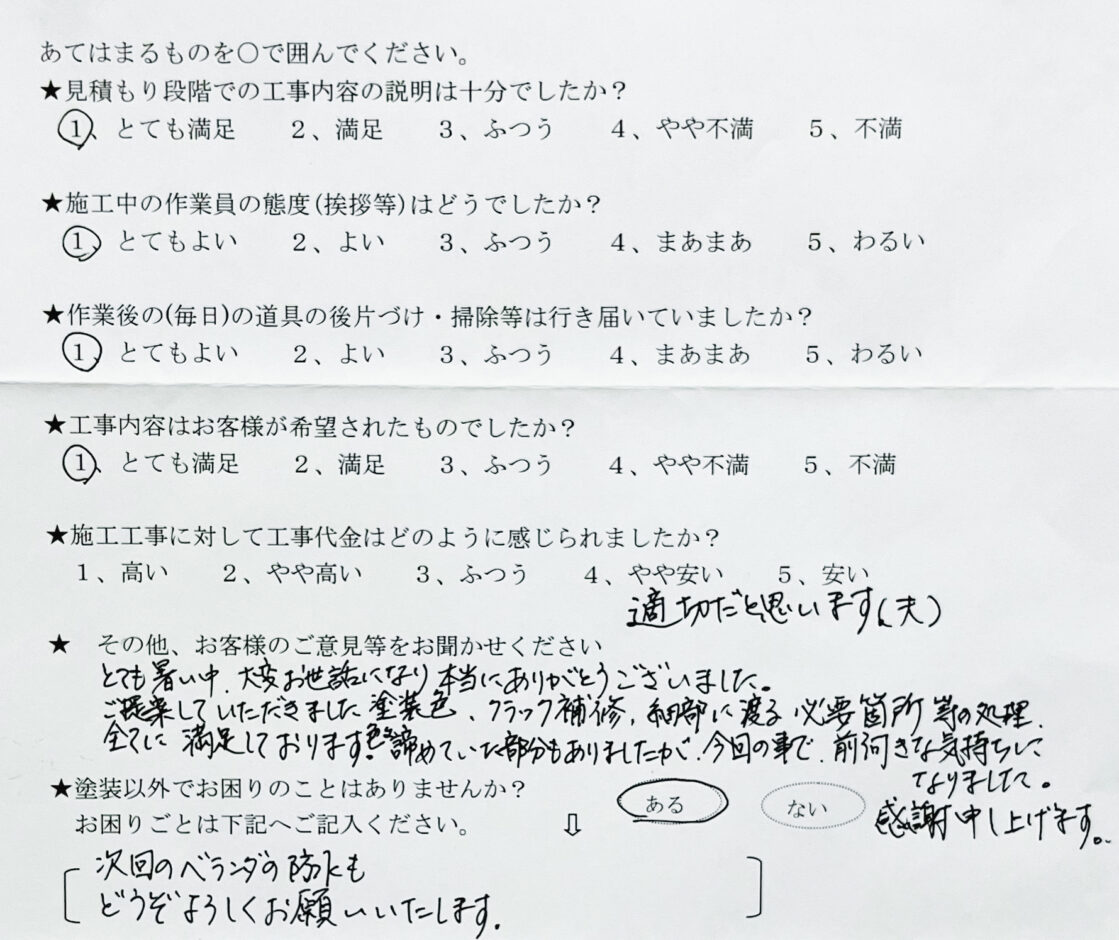 あてはまるものを○で囲んでください。
★見積もり段階での工事内容の説明は十分でしたか？
1、とても満足　2、満足　3、ふつう　4、やや不満　5、不満
★施工中の作業員の態度(挨拶等)はどうでしたか？
1、とてもよい　2、よい　3、ふつう　4、まあまあ　5、わるい
★作業後の(毎日)の道具の後片づけ・掃除等は行き届いていましたか？
1、とてもよい　2、よい　3、ふつう　4、まあまあ　5、わるい
★工事内容はお客様が希望されたものでしたか？
1、とても満足　2、満足　3、ふつう　4、やや不満　5、不満
★施工工事に対して工事代金はどのように感じられましたか？
1、高い　2、やや高い　3、ふつう　4、やや安い　5、安い
適切だと思います(夫)
★　その他、お客様のご意見等をお聞かせください
とても暑い中、大変お世話になり本当にありがとうございました。
ご提案していただきました塗装色、クラック補修、細部に渡る必要箇所等の処理、
全てに満足しております。諦めていた部分もありましたが、今回の事で、前向きな気持ちに
なりました。
感謝申し上げます。
★塗装以外でお困りのことはありませんか？　ある　ない
お困りごとは下記へご記入ください。　⇩
次回のベランダの防水も
どうぞよろしくお願いいたします。